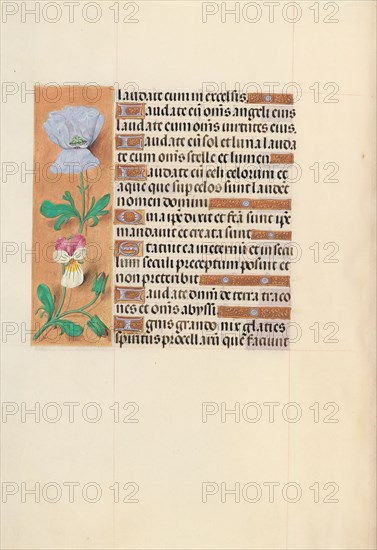 laudate eum in excelsis.
Laudate eū om̄s angeli eius
laudate eum om̄s uirtutes eius.
Laudate eū sol et luna lauda
te eum om̄s stelle et lumen.
Laudate eū celi celorum et
aque que sup celos sunt laudēt
nomen domini
Quia ip̄e dixit et fc̄a sunt ip̄e
mandauit et creata sunt
Statuit ea in eternū et in secu
lum seculi preceptum posuit et
non preteribit
Laudate dn̄m de terra draco
nes et om̄s abyssi
Ignis grando nix glacies
spiritus procellarū que faciunt